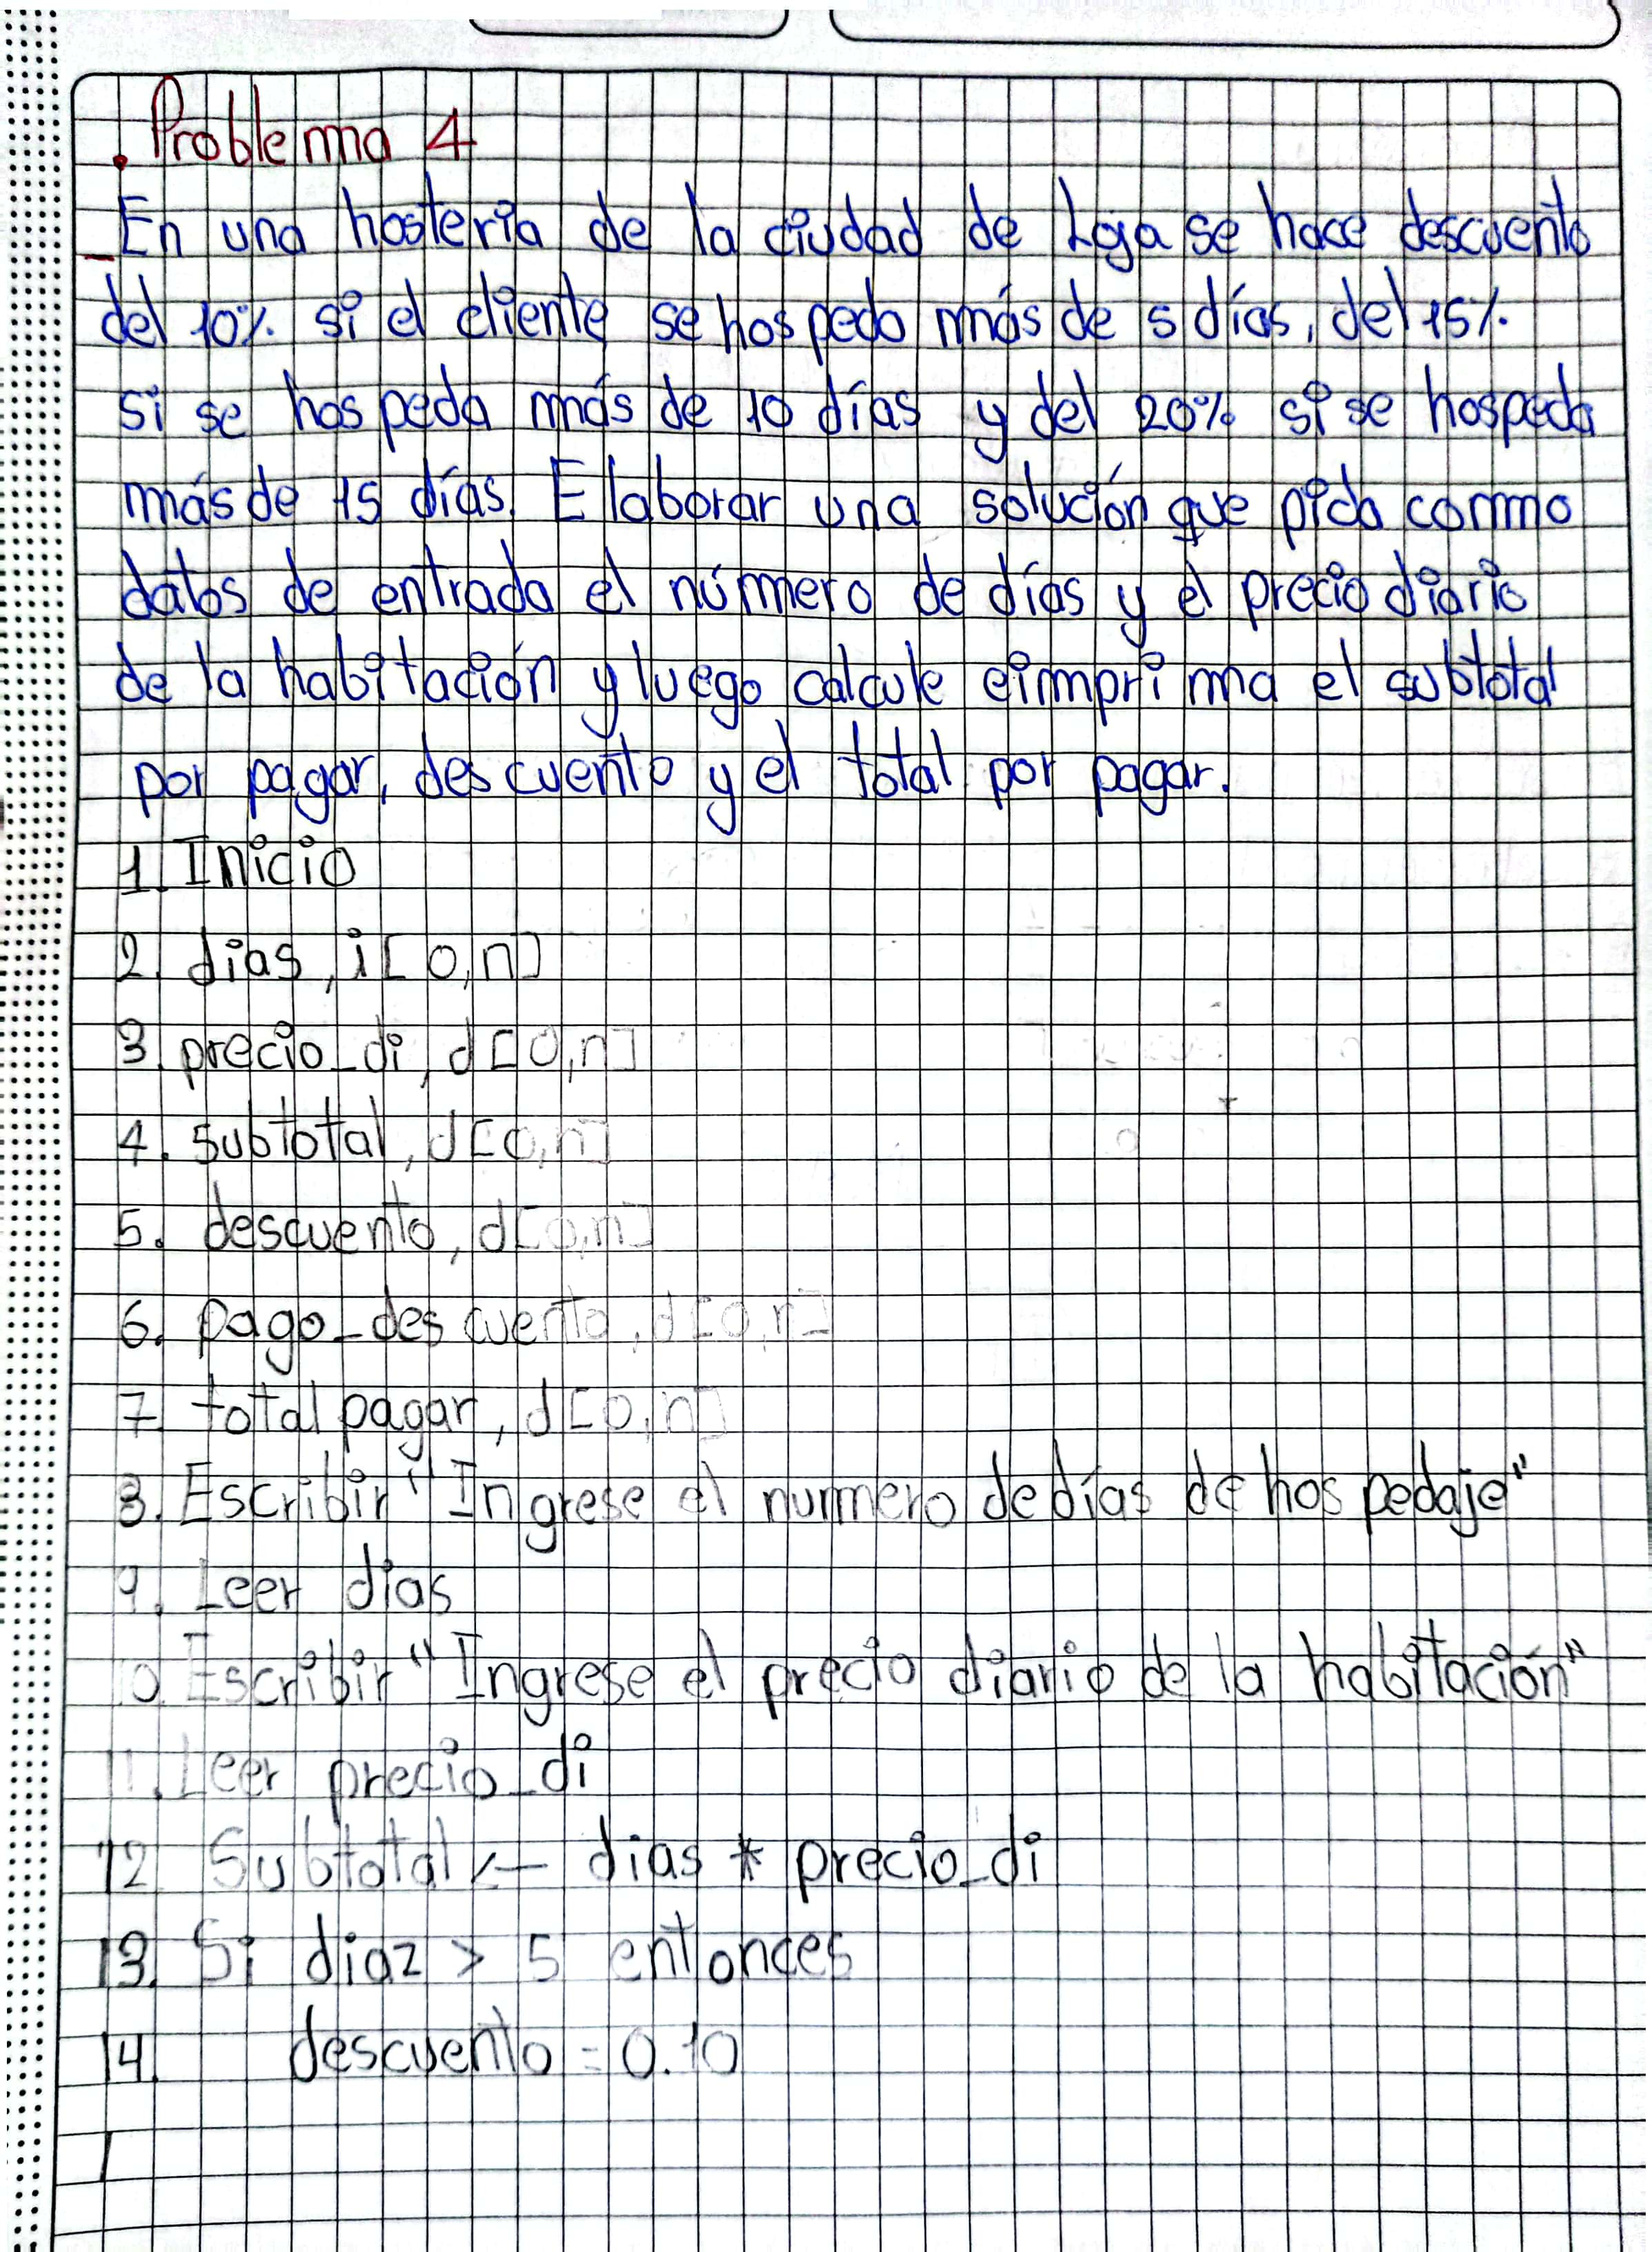 . Problema 4
En una hosteria de la ciudad de Loja se hace descuento
del 10% si el cliente se hospeda más de 5 días, del 15%
si se hospeda más de 10 días y del 20% si se hospeda
más de 15 días. Elaborar una solución que pida como
datos de entrada el número de días y el precio diario
de la habitación y luego calcule e imprima el subtotal
por pagar, descuento y el total por pagar.
1. Inicio
2. dias, i[0,n]
3. precio_di, d[0,n]
4. subtotal, d[0,n]
5. descuento, d[0,n]
6. pago_descuento, d[0,n]
7. total pagar, d[0,n]
8. Escribir "Ingrese el numero de días de hospedaje"
9. Leer dias
10. Escribir "Ingrese el precio diario de la habitación"
11. Leer precio_di
12. Subtotal ← dias * precio_di
13. Si diaz > 5 entonces
14. descuento = 0.10